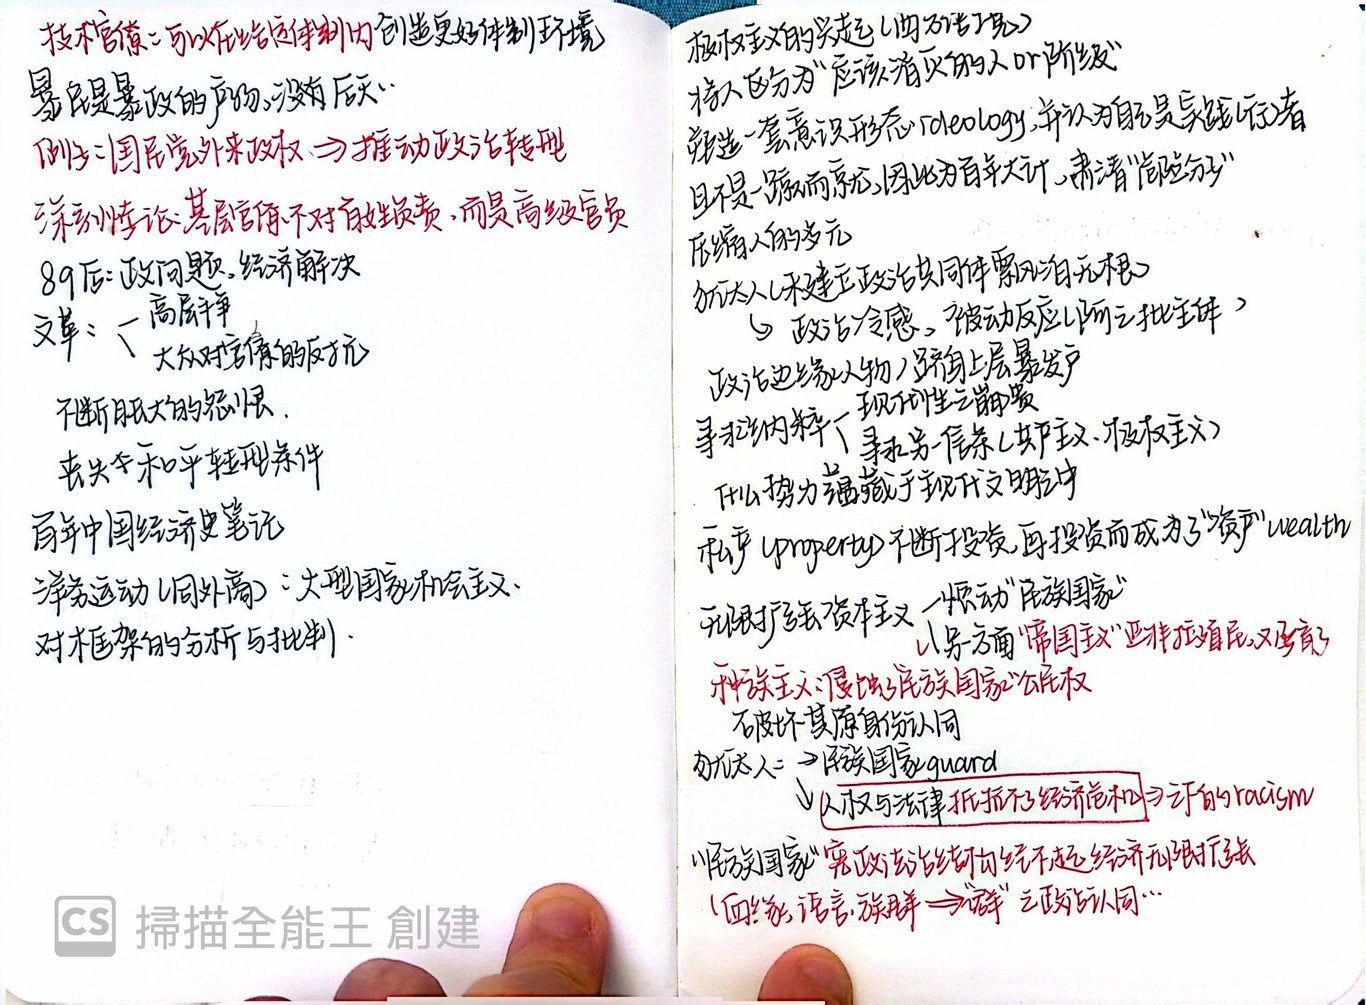 技术官僚：可以在给定体制内创造更好体制环境
暴民是暴政的产物，没有后天…
例子：国民党外来政权 → 推动政治转型
深刻悖论：基层官僚不对百姓负责，而是高级官员
89后：政问题，经济解决
文革：
高层斗争
大众对官僚的反抗
不断膨大的怨恨．
丧失今和平转型条件
百年中国经济史笔记
洋务运动（同外商）：大型国家机会主义．
对框架的分析与批判．
极权主义的兴起（西方语境）
将人区分为“应该消灭的人or阶级”
塑造一套意识形态ideology，并认为自己是实践（行）者
且不是一蹴而就，因此为百年大计，肃清“危险分子”
压缩人的多元
犹太人（未建立政治共同体 飘泊无根）
政治冷感、被动反应（阿之批主体）
政治边缘人物，跻身上层暴发户
寻求法内粹
现代制生之崩溃
寻求另一信条（共产主义、极权主义）
什么势力蕴藏于现代文明之中
私产（property）不断投资，再投资而成为了“资产”wealth
无限扩张资本主义
一烦动“民族国家”
另一方面“帝国主义”亚非拉殖民，又孕育了
种族主义：侵蚀了“民族国家”公民权
破坏其原身份认同
犹太人： → 民族国家guard
人权与法律抵抗不了经济危机 → 的racism
“民族国家”宪政法治结构经不起经济无限扩张
（血缘，语言，族群 → “群”之政治认同…
CS 掃描全能王 創建